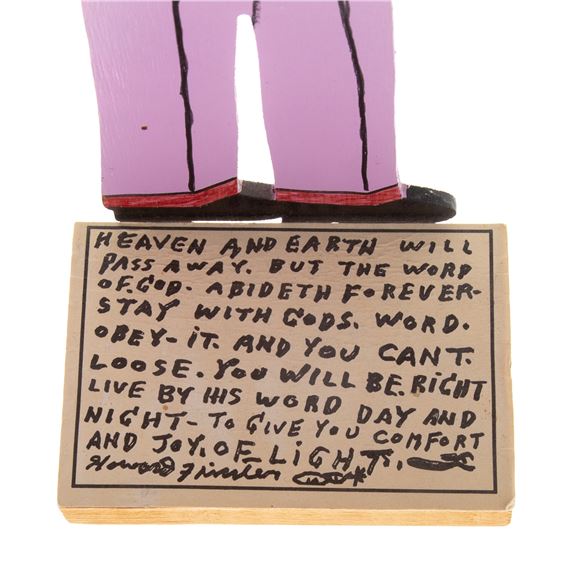 HEAVEN AND EARTH WILL
PASS AWAY. BUT THE WORD
OF. GOD. ABIDETH FOREVER-
STAY WITH GODS. WORD.
OBEY- IT. AND YOU CANT.
LOOSE. YOU WILL BE. RIGHT
LIVE BY HIS WORD DAY AND
NIGHT- TO GIVE YOU COMFORT
AND JOY. OF LIGHTS.
Howard Finster